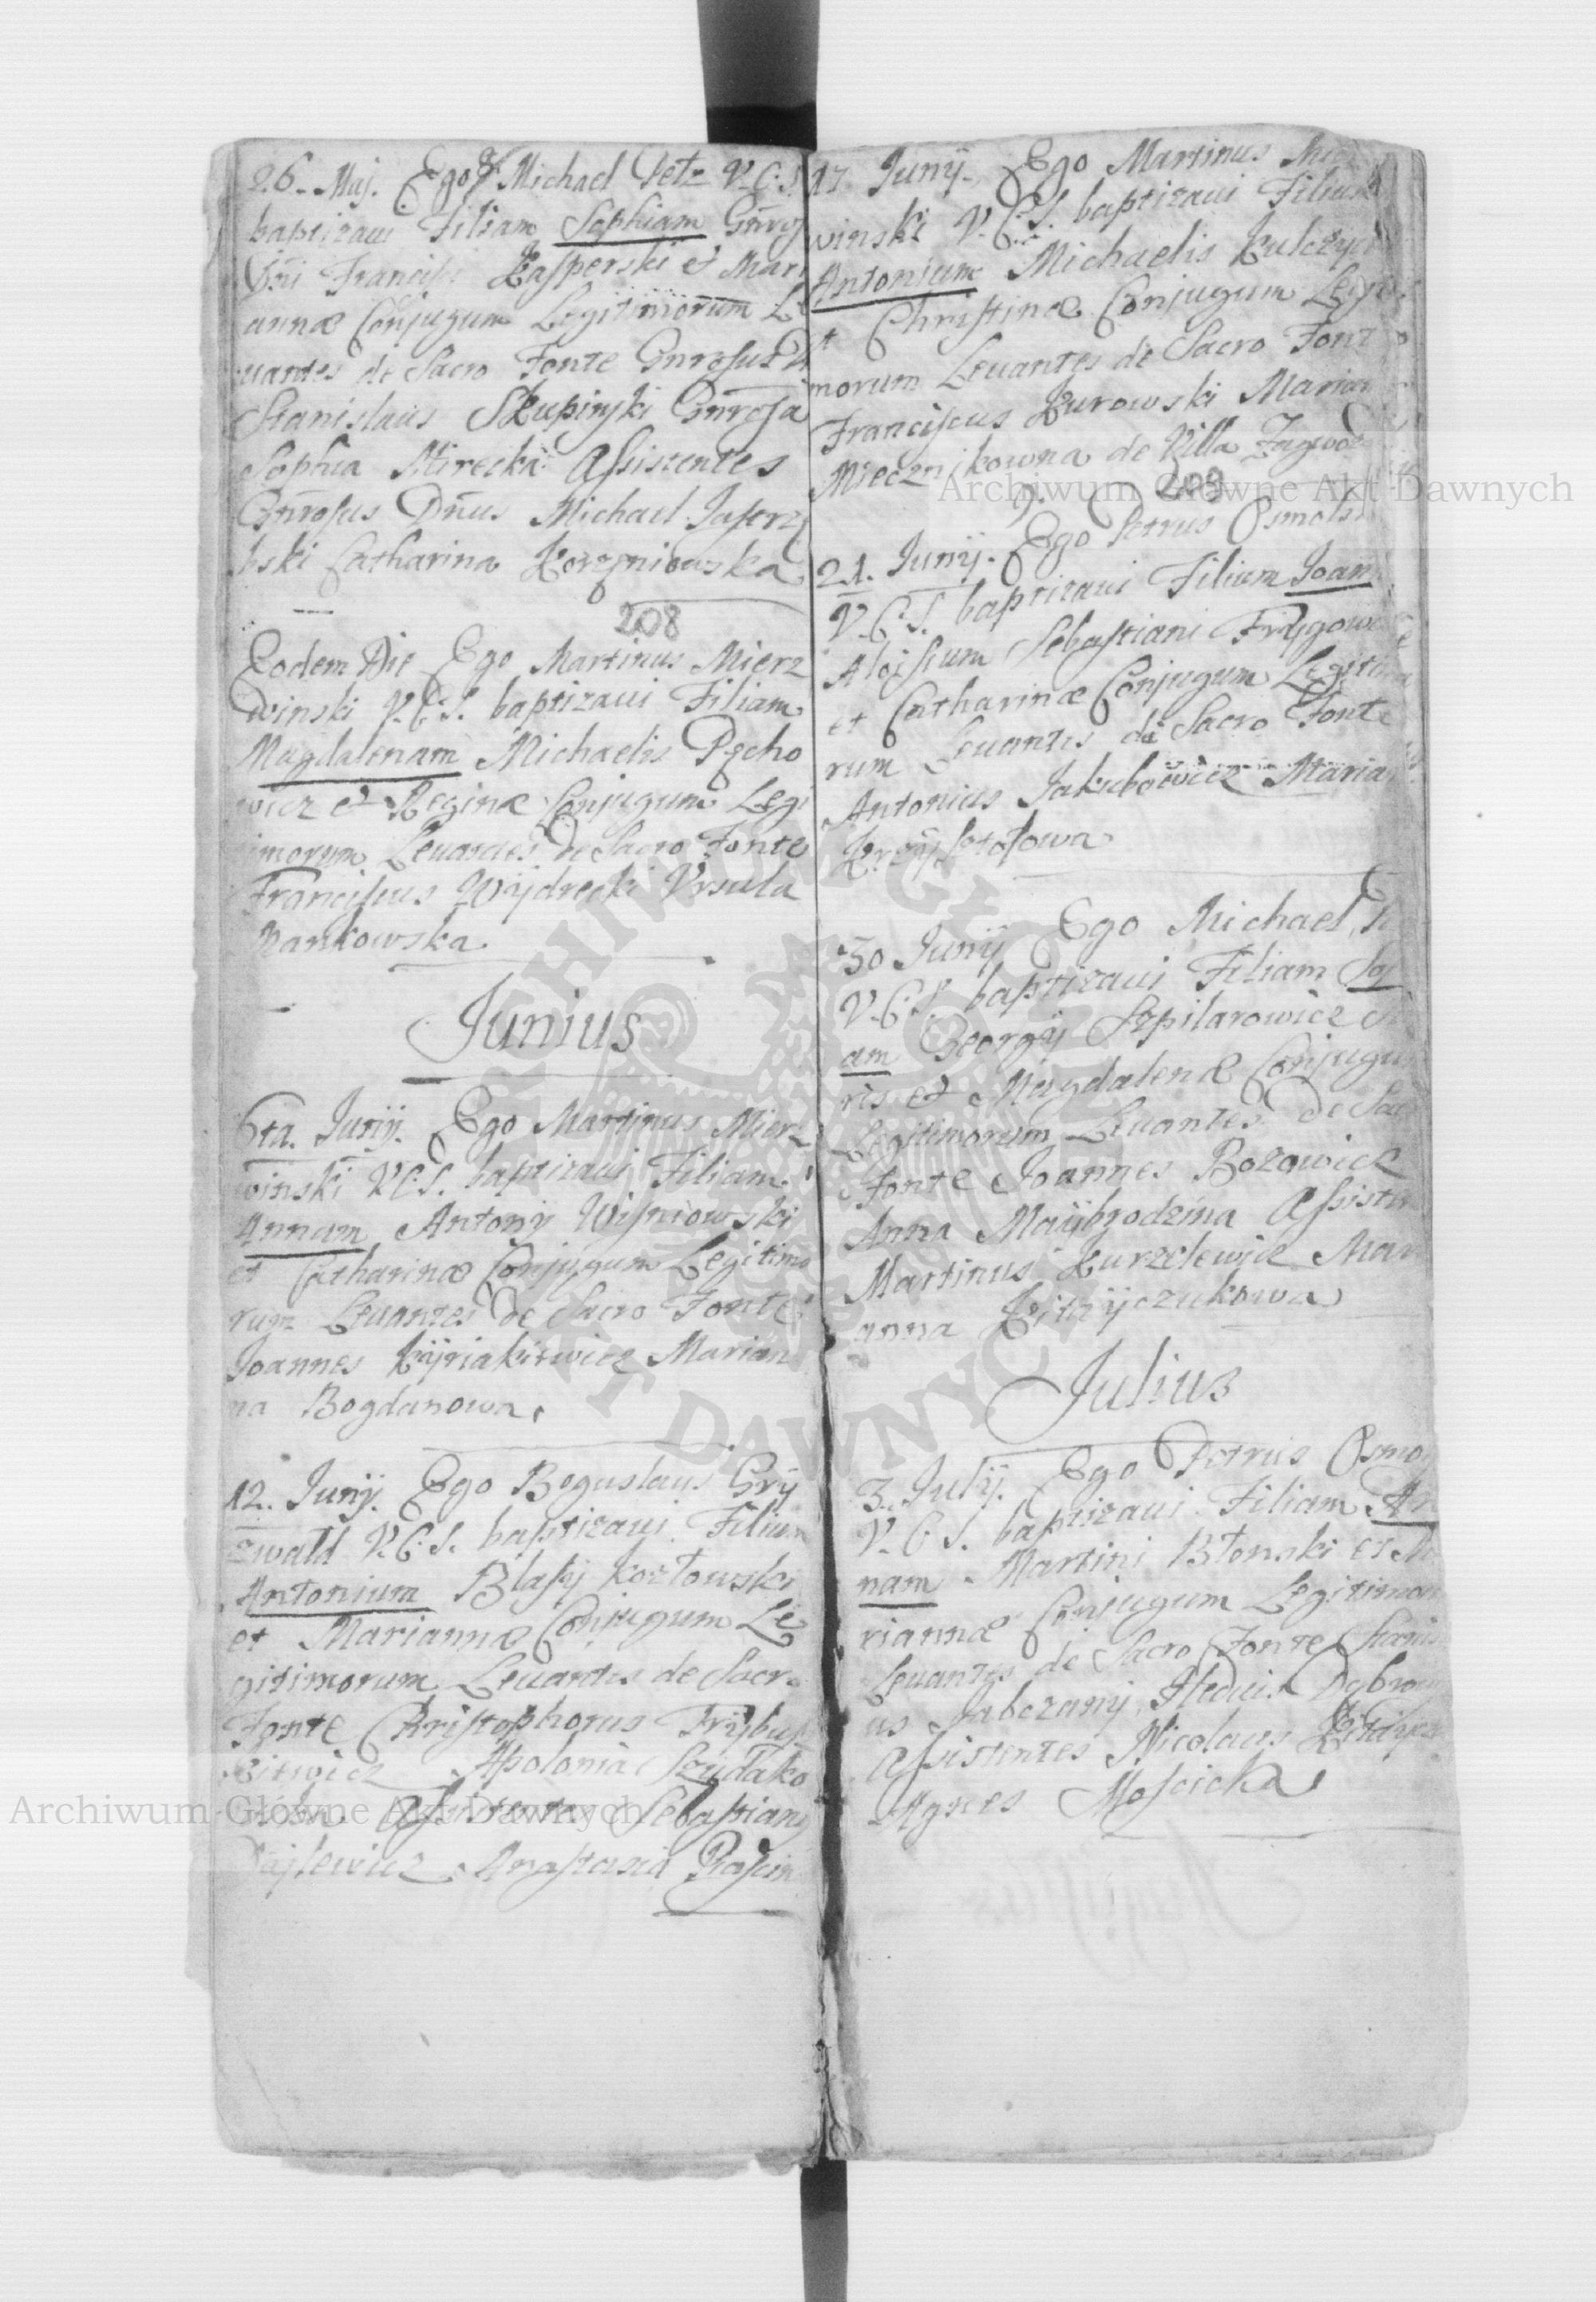 26. Maj. Ego Michael Petz V.C.S.
baptizaui Filiam Sophiam Gnros
Dni Francisc Kasperski et Mari
annæ Conjugum Legitimorum Le
uantes de Sacro Fonte Gnrosus D
Stanislaus Skupinski Gnrosa
Sophia Mirecka Assistentes
Gnrosus Dnus Michael Jastrzę
bski Catharina Korzeniowska
208
Eodem Die Ego Martinus Mierz
winski V.C.S. baptizaui Filiam
Magdalenam Michaelis Pęcho
wicz et Reginæ Conjugum Legi
timorum Leuantes de Sacro Fonte
Franciscus Wÿdrecki Vrsula
Mankowska
Junius
6ta. Junij. Ego Martinus Mierz
winski V.C.S. baptizaui Filiam
Annam Antonij Wisniowski
et Catharinæ Conjugum Legitimo
rum Leuantes de Sacro Fonte
Joannes Kÿriakiewicz Marian
na Bogdanowa.
12. Junij. Ego Boguslaus Grÿ
zwald V.C.S. baptizaui Filium
Antonium Blasij Kozłowski
et Mariannæ Conjugum Le
gitimorum Leuantes de Sacro
Fonte Christophorus Frÿbus
kiewicz Apolonia Szudako
Assistentes Sebastianus
Anastasia
17 Junij. Ego Martinus Mierz
winski V.C.S. baptizaui Filium
Antonium Michaelis Kulczyc
et Christinæ Conjugum Legiti
morum Leuantes de Sacro Font
Franciscus Kurowski Marian
Miecznikowna de Villa
209
21. Junij. Ego Petrus Osmolski
V.C.S. baptizaui Filium Joan
Aloisium Sebastiani Frÿgowi
et Catharinæ Conjugum Legitimo
rum Leuantes de Sacro Fonte
Antonius Jakubowicz Marian
Krzÿsztofowa
30 Junij Ego Michael
V.C.S. baptizaui Filiam
am Georgij Szpilarowicz
ris et Magdalenæ Conjugum
Legitimorum Leuantes de Sac
Fonte Joannes Bozowicz
Anna Maÿbrodzina Assisten
Martinus Kurzelewicz Mari
anna Kitaÿczukowa
Julius
3. Julij. Ego Petrus Osmol
V.C.S. baptizaui Filiam An
nam Martini Błonski et Ma
riannæ Conjugum Legitimor
Leuantes de Sacro Fonte Stanisl
us Jabczanij Heduis Dąbrow
Assistentes Nicolaus Kitaÿcz
Agnes Moscicka
Archiwum Główne Akt Dawnych
Archiwum Główne Akt Dawnych
ARCHIWUM GŁÓWNE AKT DAWNYCH